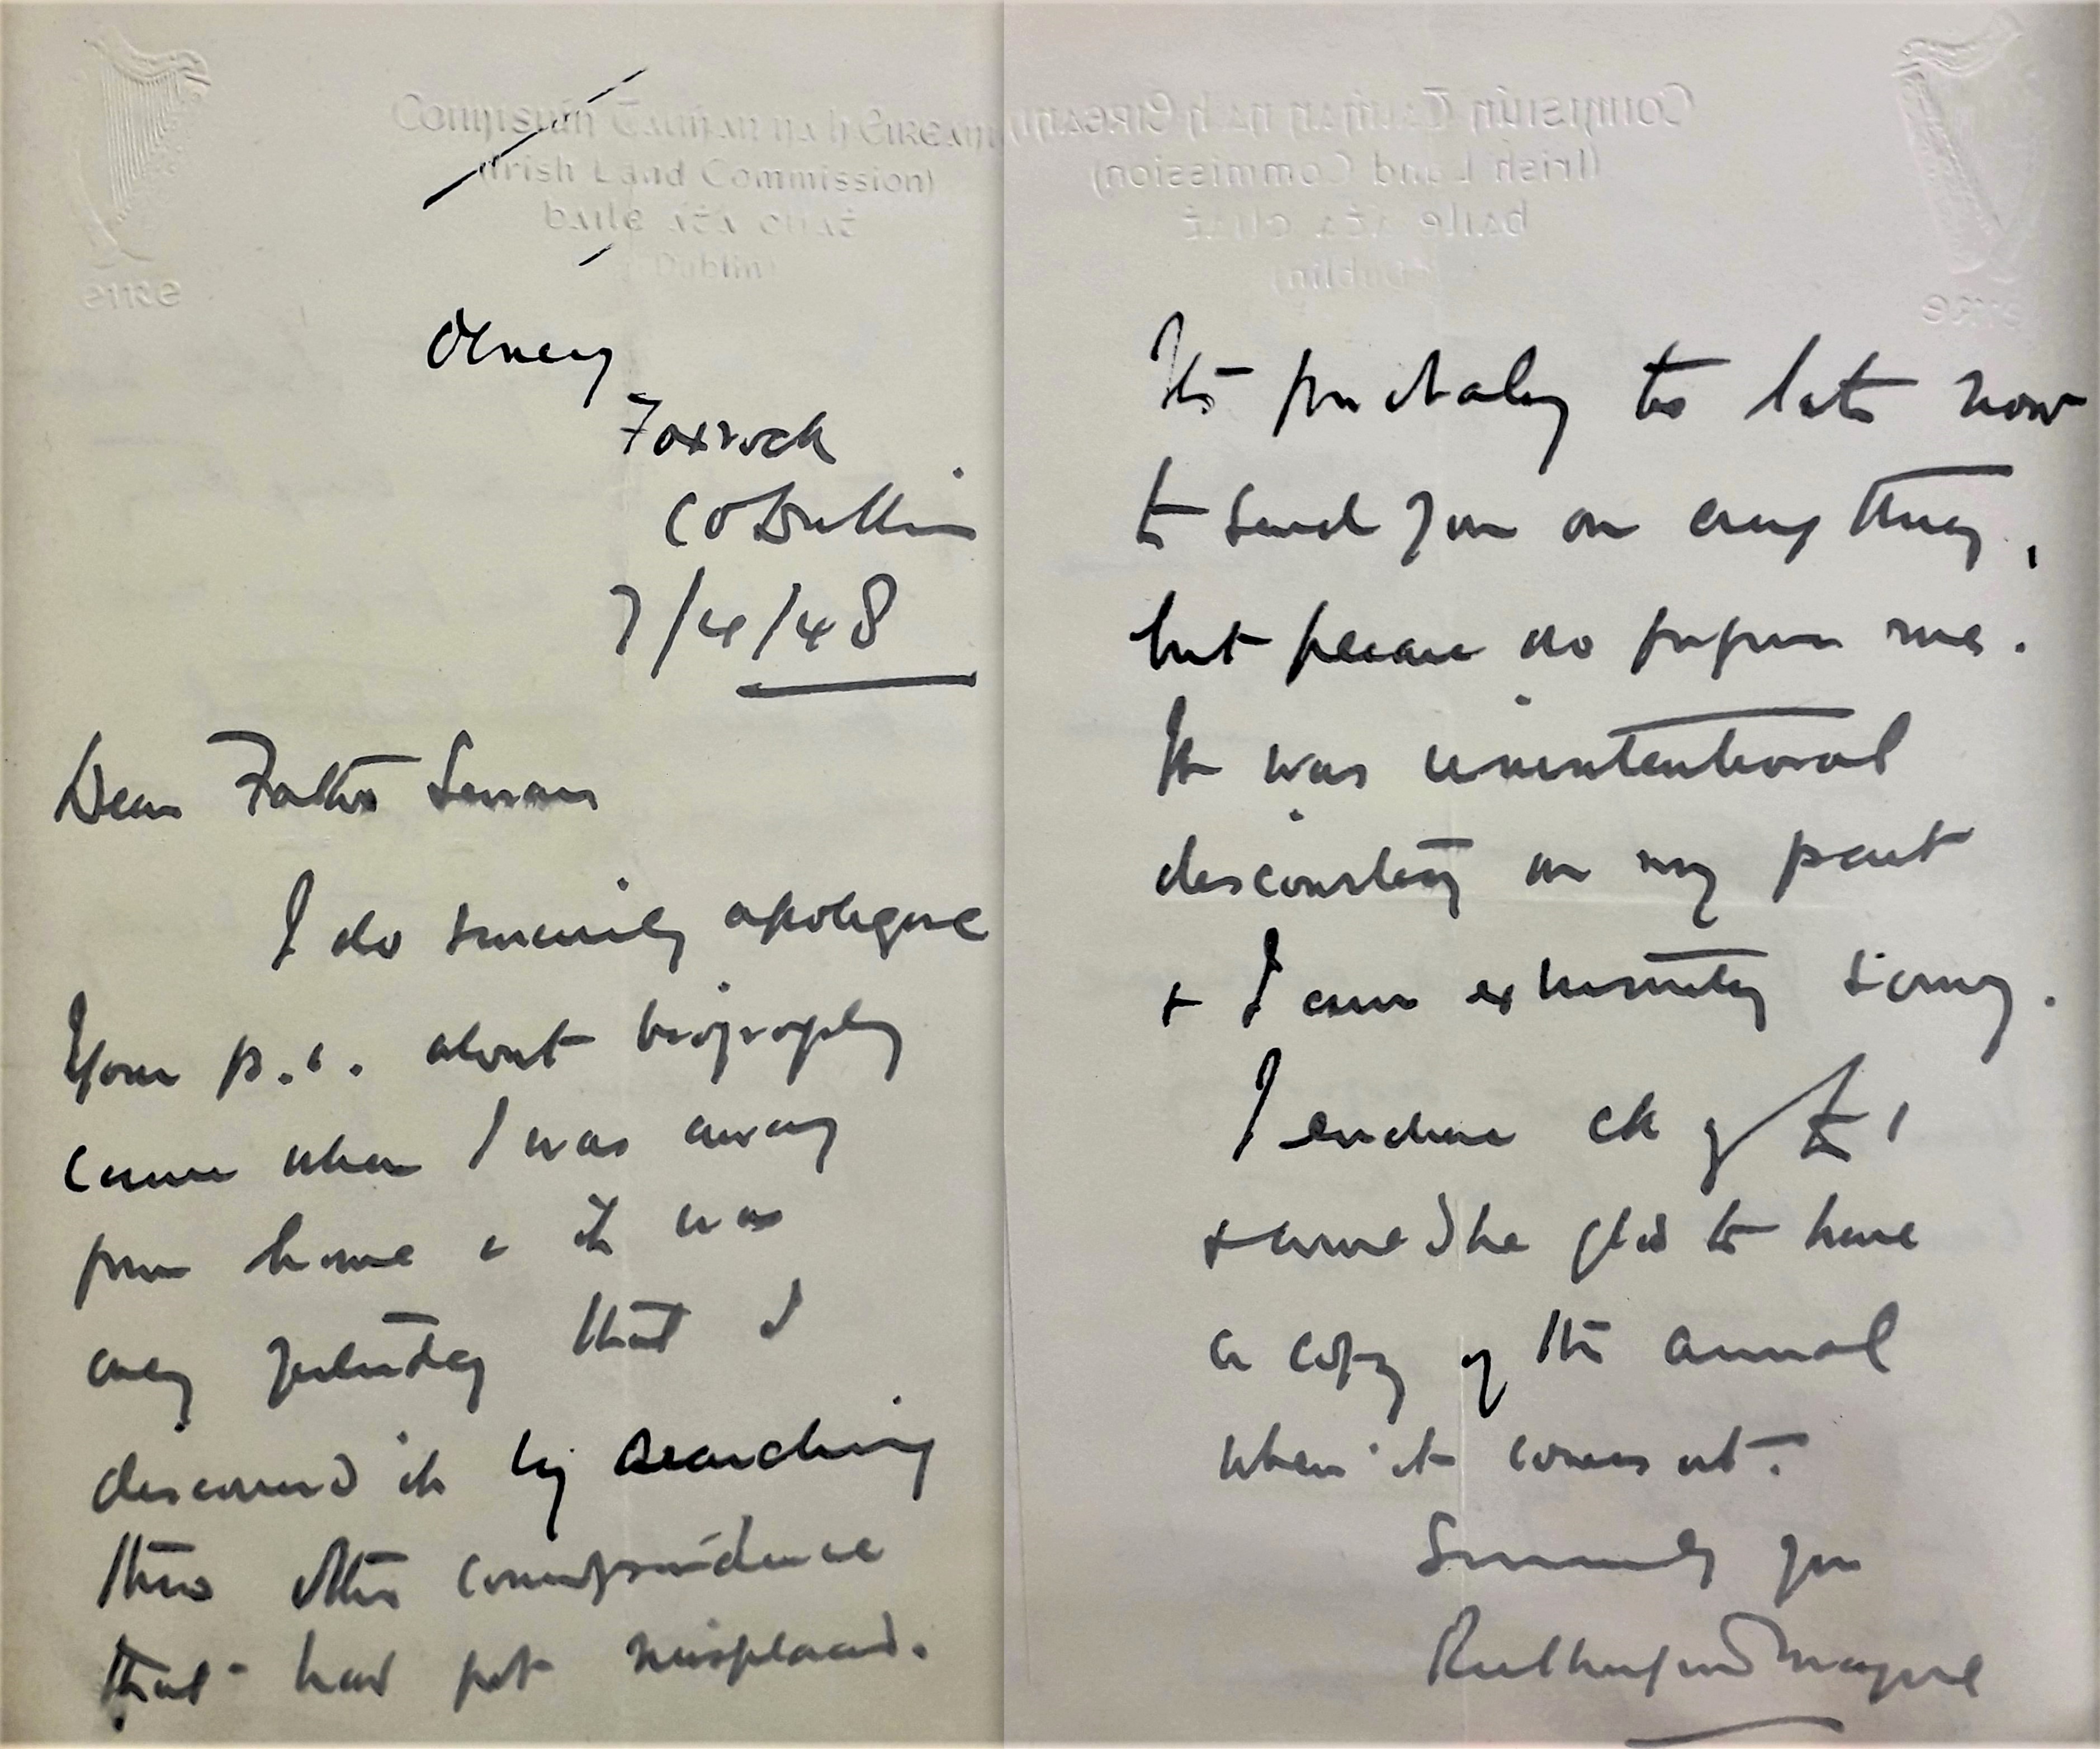 Coimisiún Talṁan na hÉireann
(Irish Land Commission)
baile áṫa cliaṫ
(Dublin)
éire
Olney
Foxrock
Co Dublin
7/4/48
Dear Father Senan
I do sincerely apologise
Your p.c. about biography
came when I was away
from home & it was
only yesterday that I
discovered it by searching
thro other correspondence
that had got misplaced.
It's probably too late now
to send you on anything,
but please do forgive me.
It was unintentional
discourtesy on my part
& I am extremely sorry.
I enclose ch of £1
& would be glad to have
a copy of the annual
when it comes out.
Sincerely yours
Rutherford Mayne